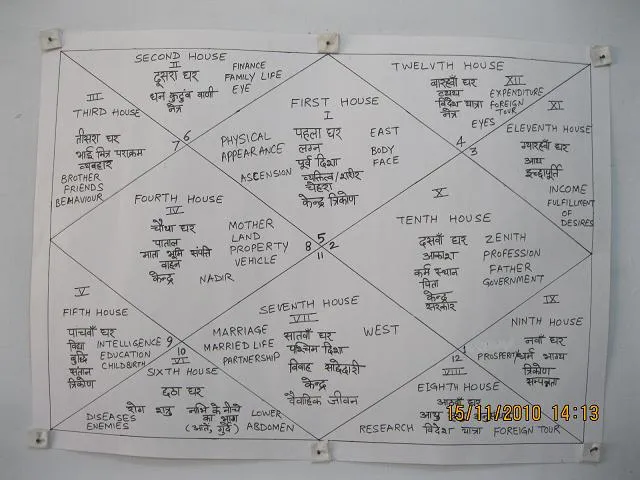 SECOND HOUSE
II
दूसरा घर
धन कुटुंब वाणी
नेत्र
FINANCE
FAMILY LIFE
EYE
TWELVTH HOUSE
XII
बारहवाँ घर
विदेश यात्रा
नेत्र
EXPENDITURE
FOREIGN
TOUR
EYES
III
THIRD HOUSE
तीसरा घर
भाई मित्र पराक्रम
व्यवहार
BROTHER
FRIENDS
BEHAVIOUR
6
7
FIRST HOUSE
I
PHYSICAL
APPEARANCE
ASCENSION
पहला घर
लग्न
पूर्व दिशा
व्यक्तित्व/शरीर
चेहरा
केन्द्र त्रिकोण
EAST
BODY
FACE
4
3
XI
ELEVENTH HOUSE
ग्यारहवाँ घर
आय
इच्छापूर्ति
INCOME
FULFILLMENT
OF
DESIRES
FOURTH HOUSE
IV
चौथा घर
पाताल
माता भूमि संपत्ति
वाहन
केन्द्र
MOTHER
LAND
PROPERTY
VEHICLE
NADIR
5
8 2
11
X
TENTH HOUSE
दसवाँ घर
आकाश
कर्म स्थान
पिता
केन्द्र
सरकार
ZENITH
PROFESSION
FATHER
GOVERNMENT
V
FIFTH HOUSE
पाचवाँ घर
विद्या
बुद्धि
संतान
त्रिकोण
INTELLIGENCE
EDUCATION
CHILDBIRTH
9
10
SEVENTH HOUSE
VII
MARRIAGE
MARRIED LIFE
PARTNERSHIP
सातवाँ घर
पश्चिम दिशा
विवाह साझेदारी
केन्द्र
वैवाहिक जीवन
WEST
IX
NINTH HOUSE
नवाँ घर
धर्म भाग्य
त्रिकोण
सम्पन्नता
PROSPERITY
1
12
VI
SIXTH HOUSE
छठा घर
रोग शत्रु
नाभि के नीचे
का भाग
(आंते, गुर्दे)
DISEASES
ENEMIES
LOWER
ABDOMEN
VIII
EIGHTH HOUSE
आठवाँ घर
आयु
RESEARCH विदेश यात्रा FOREIGN TOUR
15/11/2010 14:13